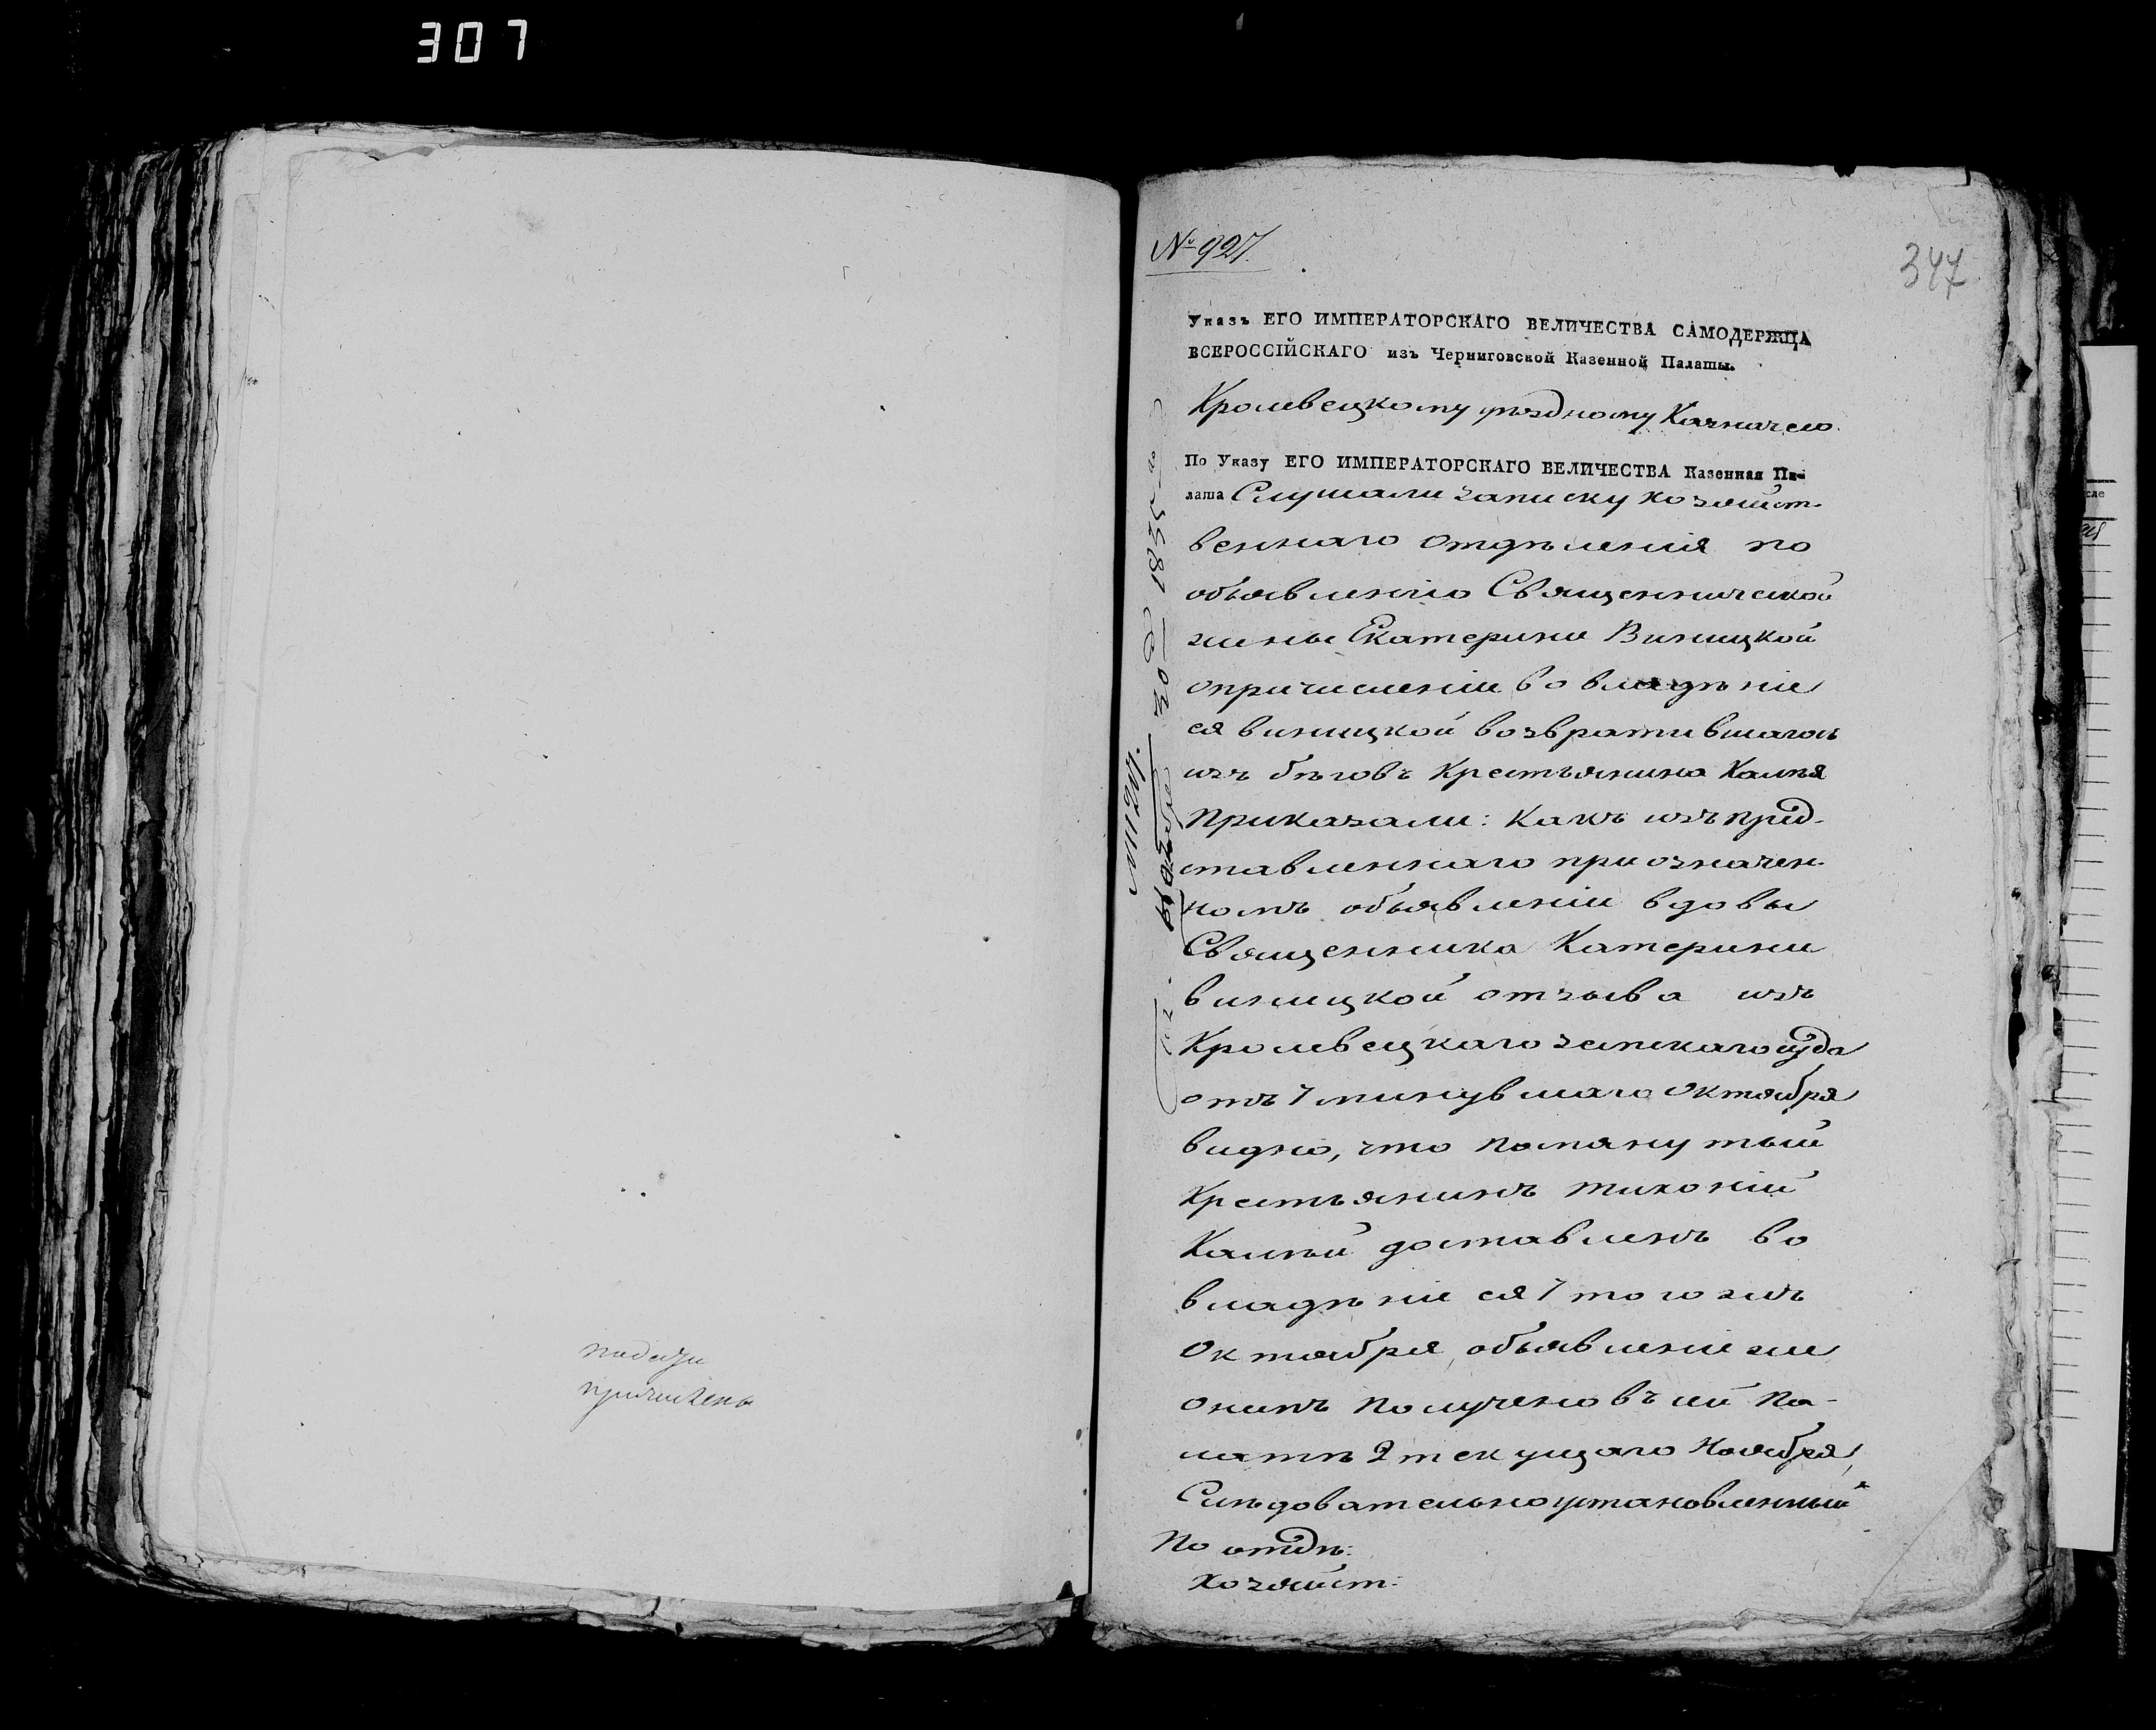 307
подати
причислены
№ 927.
347
Указъ ЕГО ИМПЕРАТОРСКАГО ВЕЛИЧЕСТВА САМОДЕРЖЦА
ВСЕРОССІЙСКАГО изъ Черниговской Казенной Палаты.
Кролевецкому уѣздному Казначею.
По Указу ЕГО ИМПЕРАТОРСКАГО ВЕЛИЧЕСТВА Казенная Па-
лата Слушали записку хозяйст-
веннаго отдѣленія по
объявленію Священнической
жены Екатерины Виницкой
о причисленіи во владѣніе
ея виницкой возвратившагось
изъ бѣговъ Крестьянина Калѣя
Приказали: Какъ изъ пред-
ставленнаго при означен-
номъ объявленіи вдовы
Священника Катерины
виницкой отзыва изъ
Кролевецкаго земскаго суда
отъ 7 минувшаго Октября
видно, что помянутый
Крестьянинъ тихоній
Калѣй доставленъ во
владѣніе ея 7 того жъ
Октября, объявленіе же
онымъ получено въ сей Па-
латѣ 2 текущаго Ноября,
Слѣдовательно установленный
По отдѣ:
хозяйст: